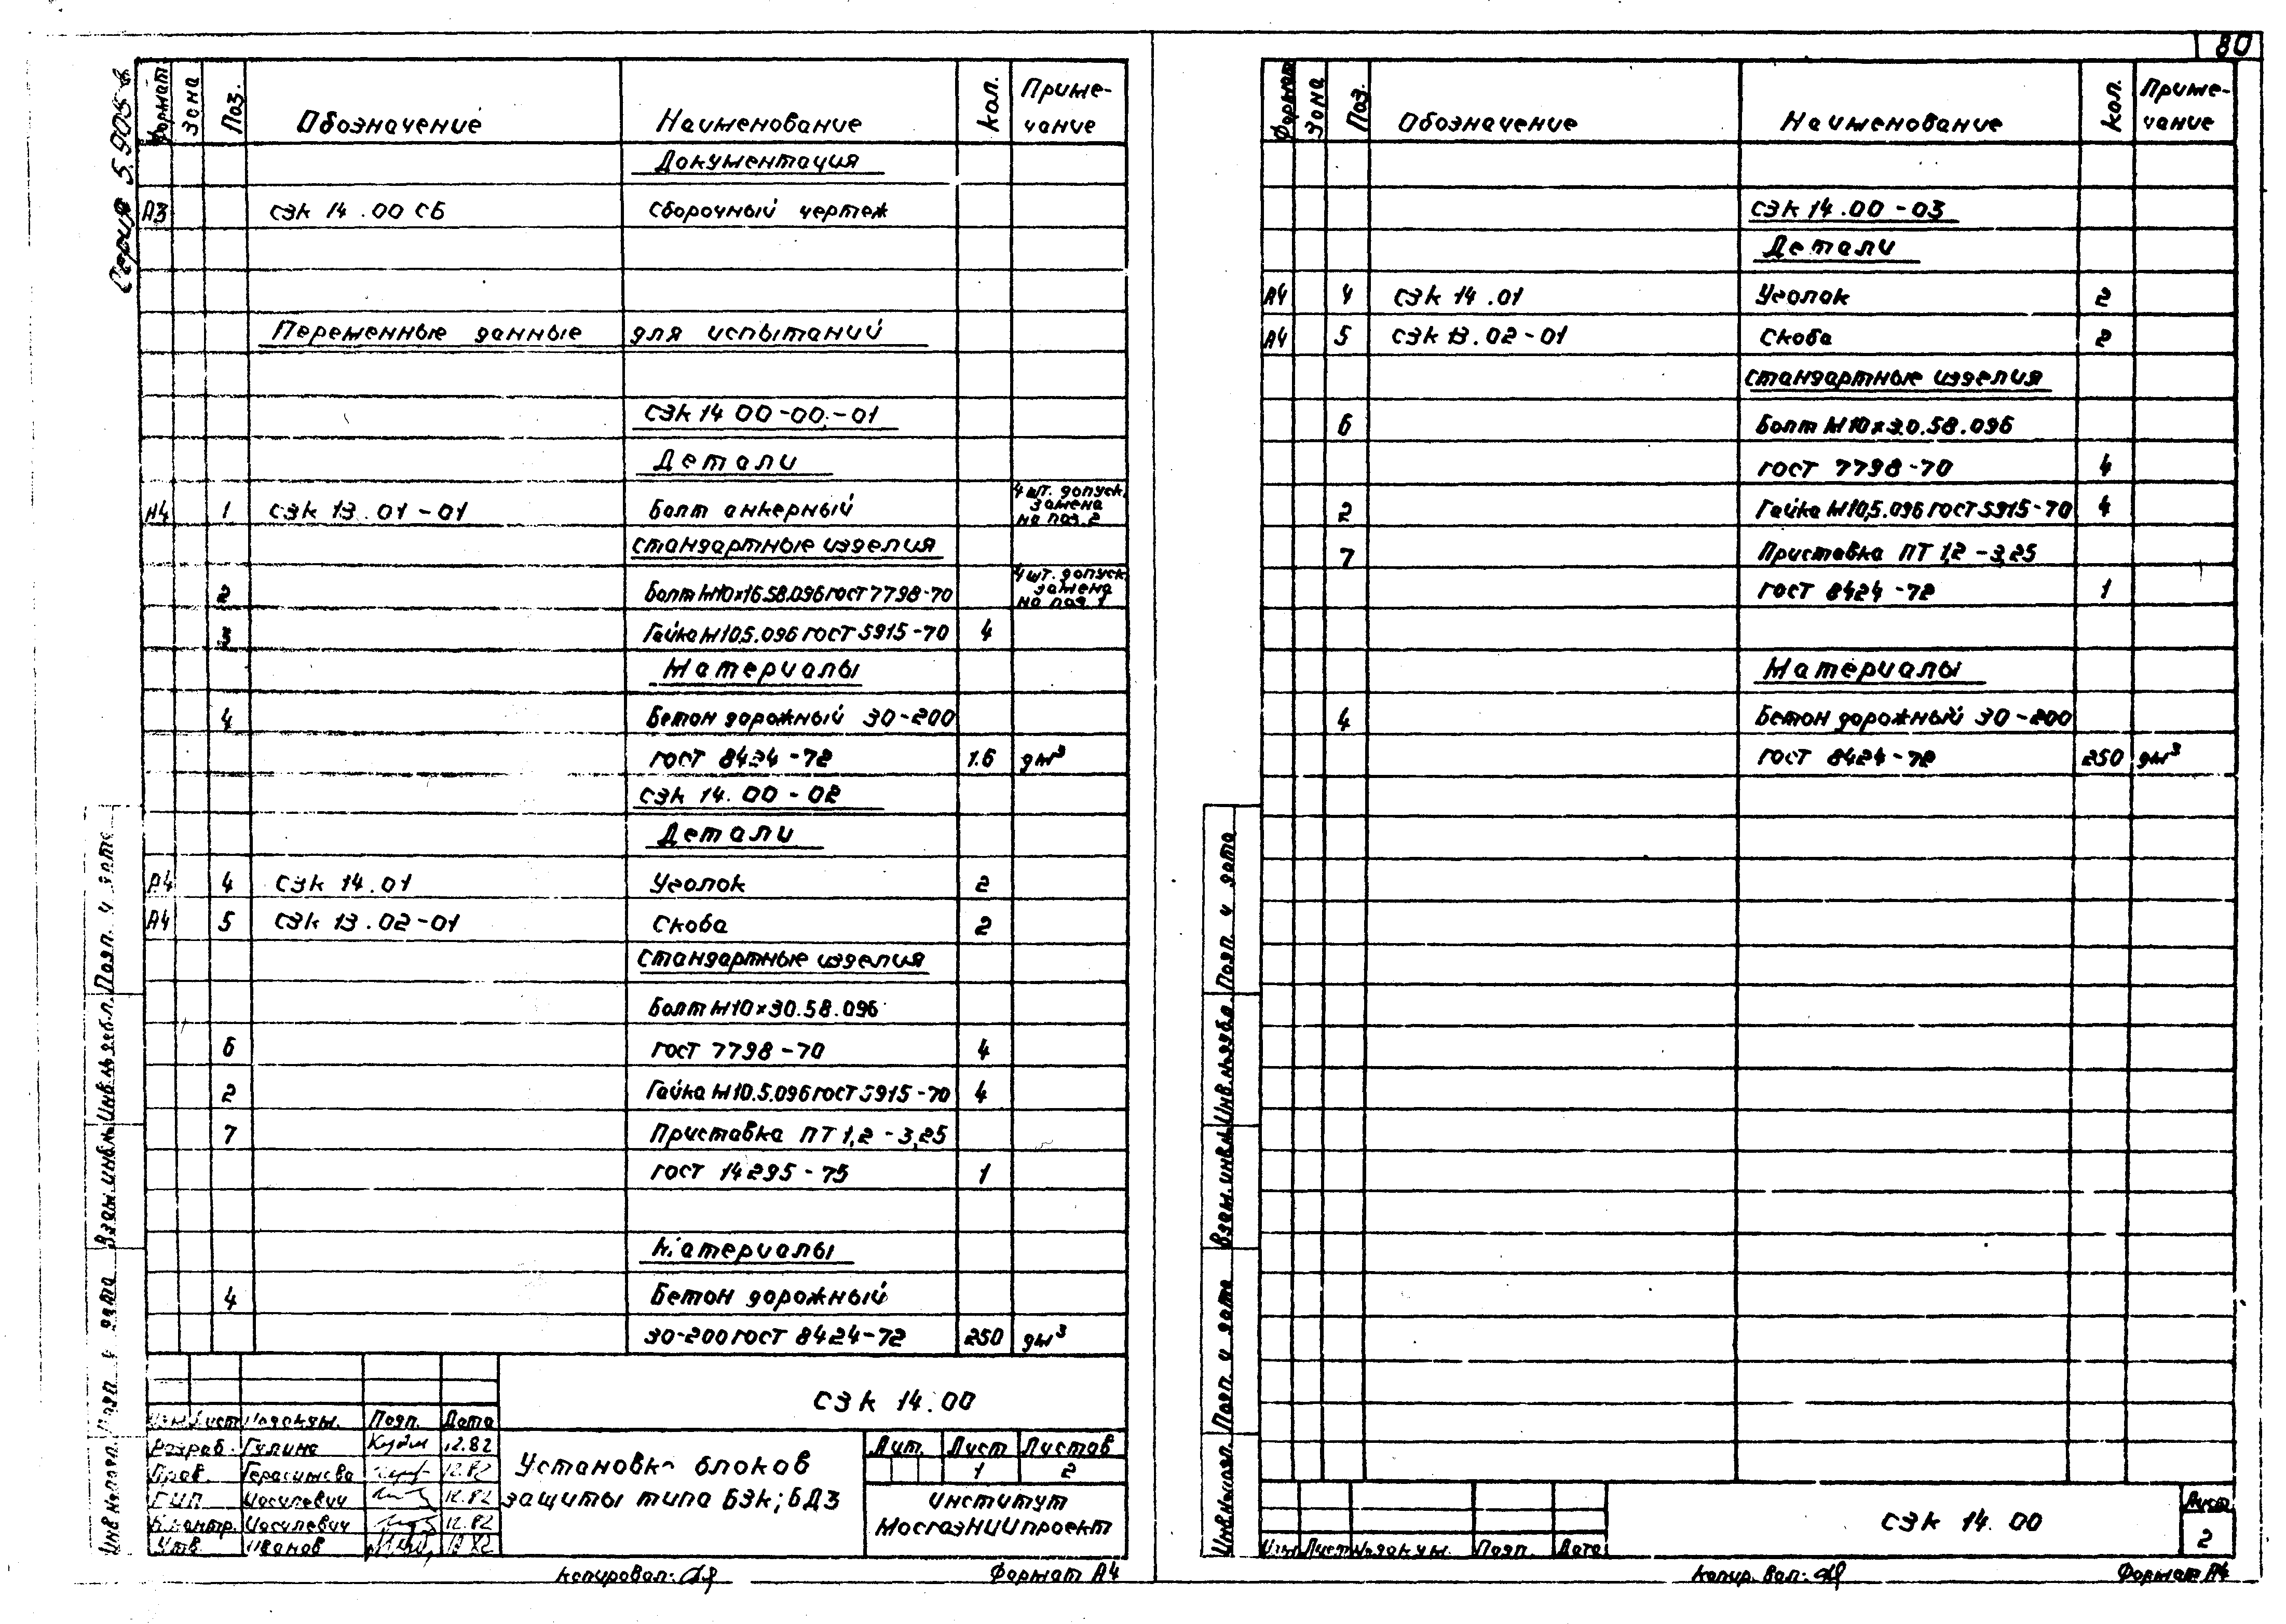 80
Серия 5.905-
Формат Зона Поз. Обозначение Наименование Кол. Приме-
чание
Документация
А3 СЗК 14.00 СБ Сборочный чертеж
Переменные данные для испытаний
СЗК 14 00-00;-01
Детали
А4 1 СЗК 13.01-01 Болт анкерный 4 шт. допуск.
замена
на поз. 2
Стандартные изделия
2 Болт М10х16.58.096 ГОСТ 7798-70 4 шт. допуск.
замена
на поз. 1
3 Гайка М10.5.096 ГОСТ 5915-70 4
Материалы
4 Бетон дорожный 30-200
ГОСТ 8424-72 1.6 дм³
СЗК 14.00-02
Детали
А4 4 СЗК 14.01 Уголок 2
А4 5 СЗК 13.02-01 Скоба 2
Стандартные изделия
Болт М10х30.58.096
6 ГОСТ 7798-70 4
2 Гайка М10.5.096 ГОСТ 5915-70 4
7 Приставка ПТ 1,2-3,25
ГОСТ 14295-75 1
Материалы
4 Бетон дорожный
30-200 ГОСТ 8424-72 250 дм³
СЗК 14.00
Изм Лист № докум. Подп. Дата
Разраб. Гулина 12.82
Пров. Герасимова 12.82
ГИП Иосилевич 12.82
Н.контр. Иосилевич 12.82
Утв. Иванов 12.82
Установка блоков
защиты типа БЗК; БДЗ
Лит. Лист Листов
1 2
Институт
МосгазНИИпроект
Копировал: Формат А4
Инв № подл. Подп и дата Взам. инв. № Инв. № дубл. Подп. и дата
Формат Зона Поз. Обозначение Наименование Кол. Приме-
чание
СЗК 14.00-03
Детали
А4 4 СЗК 14.01 Уголок 2
А4 5 СЗК 13.02-01 Скоба 2
Стандартные изделия
6 Болт М10х30.58.096
ГОСТ 7798-70 4
2 Гайка М10,5.096 ГОСТ 5915-70 4
7 Приставка ПТ 1,2-3,25
ГОСТ 8424-72 1
Материалы
4 Бетон дорожный 30-200
ГОСТ 8424-72 250 дм³
Инв. № подл. Подп и дата Взам. инв. № Инв. № дубл. Подп. и дата
Изм Лист № докум. Подп. Дата
СЗК 14.00
Лист
2
Копировал: Формат А4